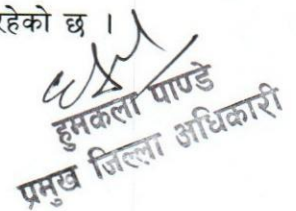 रहेको छ ।
हुमकला पाण्डे
प्रमुख जिल्ला अधिकारी